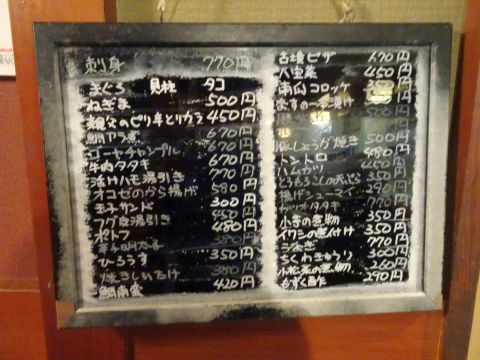 刺身 770円
まぐろ 貝柱 タコ
ねぎま 500円
親父のピリ辛とりカラ 450円
鯛アラ煮 670円
ゴーヤチャンプル 670円
牛肉タタキ 670円
活けハモ湯引き 770円
オコゼのから揚げ 580
玉子サンド 300円
フグ皮湯引き 450
ポトフ 480円
明太子 380円
ひろうす 350円
焼きしいたけ 380
鯛南蛮 420円
古墳ピザ 670円
八宝菜 450円
南仏コロッケ
なすの一本漬け
しょうが焼き 500円
トントロ 480円
ハムカツ
とうもろこし天ぷら 350
揚げ 290円
カツオタタキ 770
小芋の煮物 350円
イワシの煮付け 350円
うなぎ 770円
ちくわきゅうり 300円
小松菜の煮物 260円
もずく酢 290円